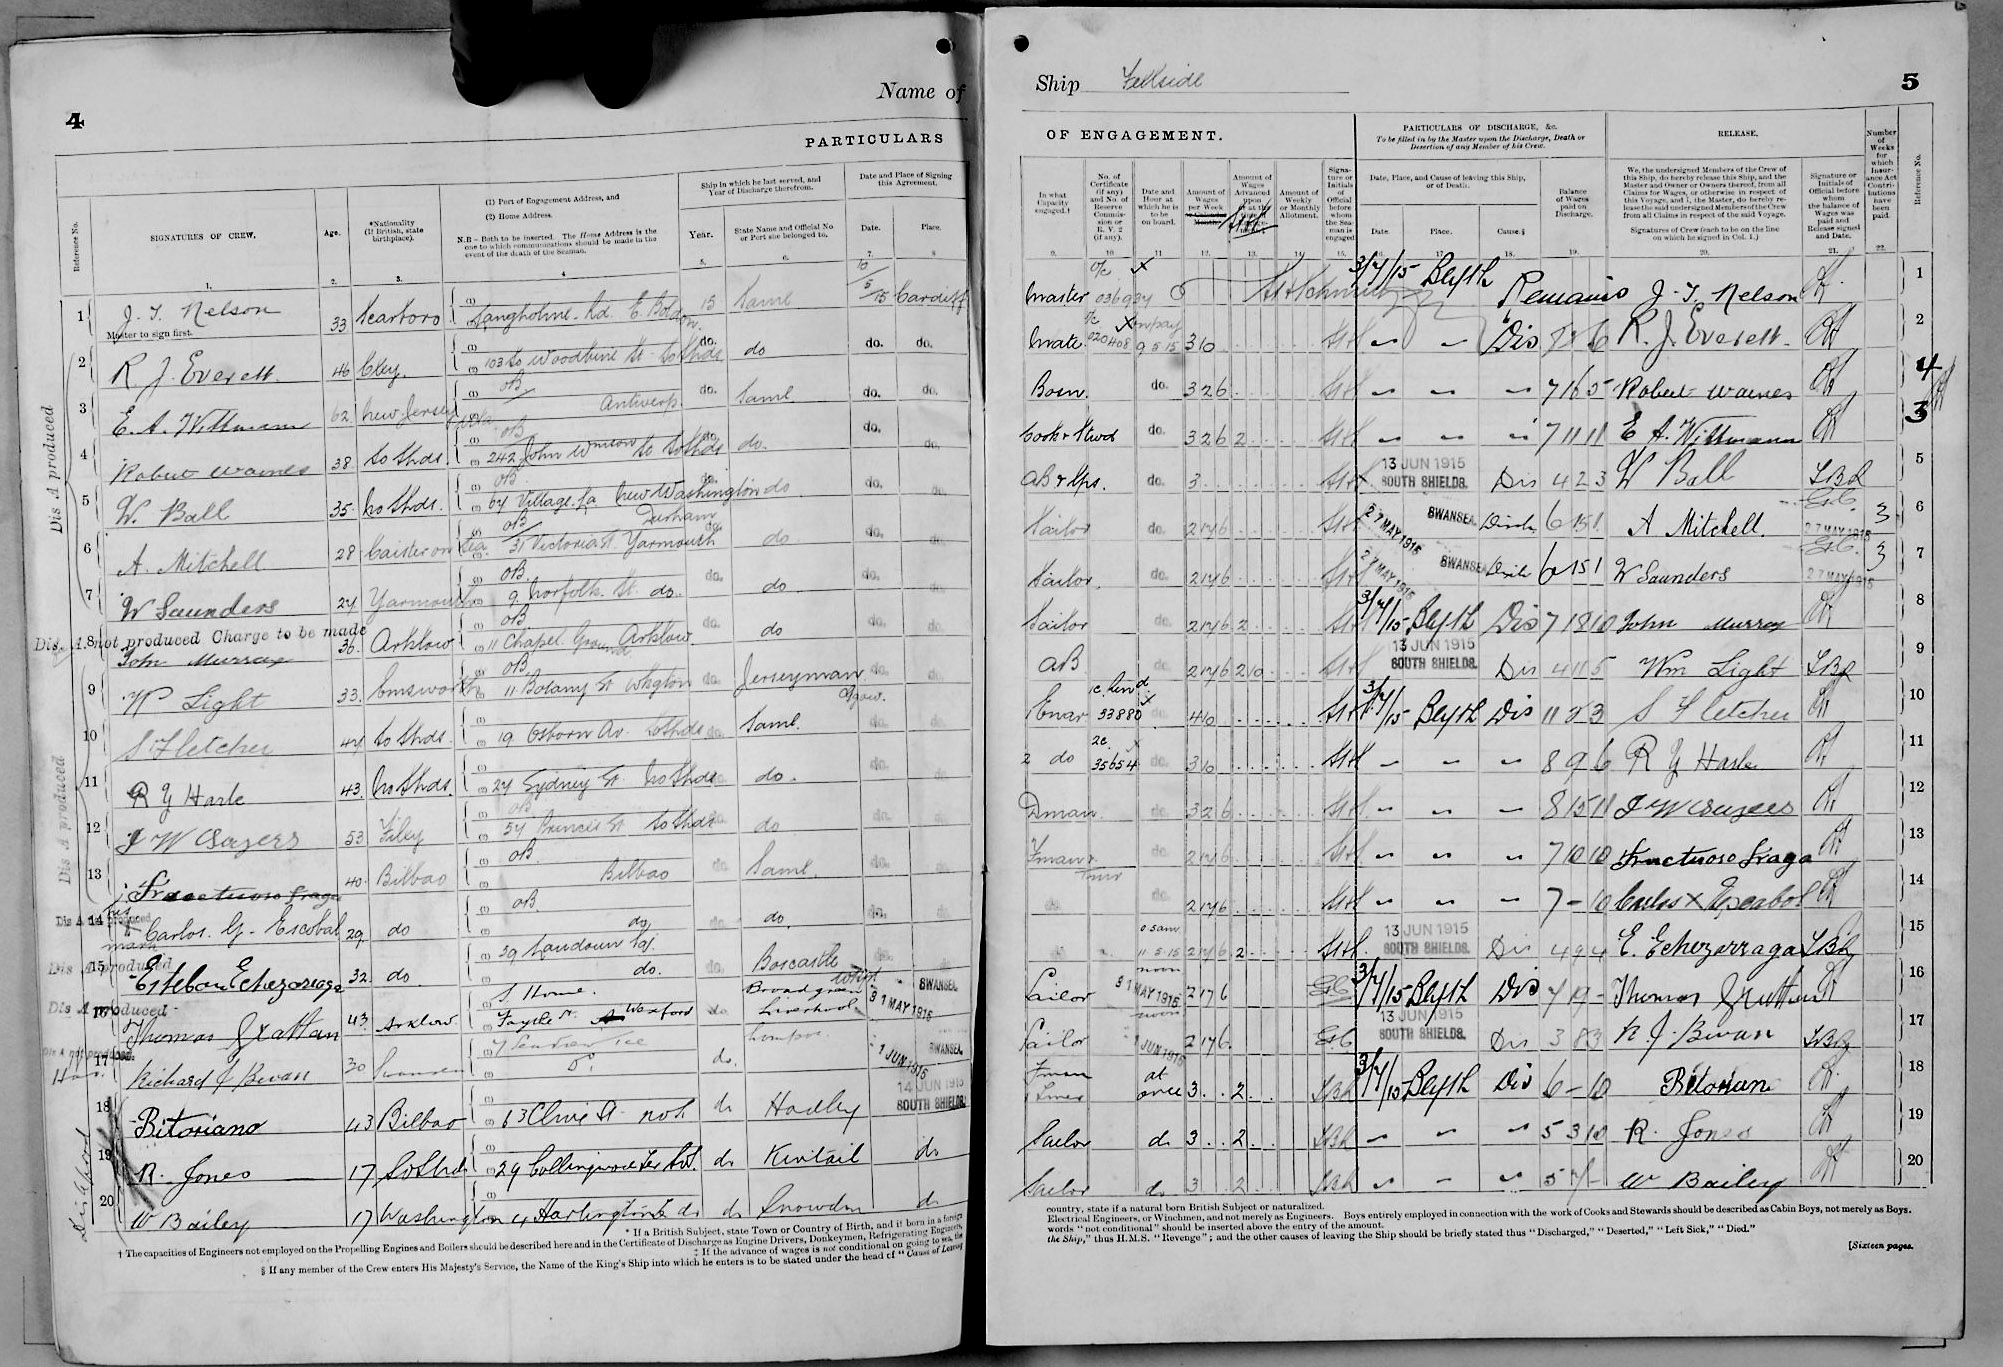 4
Name of
PARTICULARS
Reference No.
SIGNATURES OF CREW.
Age.
*Nationality (If British, state birthplace).
(1) Port of Engagement Address, and
(2) Home Address.
N.B.—Both to be inserted. The Home Address is the one to which communications should be made in the event of the death of the Seaman.
Ship in which he last served, and Year of Discharge therefrom.
Year.
State Name and Official No or Port she belonged to.
Date and Place of Signing this Agreement.
Date.
Place.
1. 2. 3. 4 5. 6. 7. 8
1 J. T. Nelson 33 Scarboro Langholme Rd E Boldon 15 Same 10/5/15 Cardiff
Master to sign first.
2 R. J. Everett 46 Cley 103 So Woodbine St So Shds do. do do. do.
3 E. A. Wittmann 62 New Jersey OB Antwerp do. Same do. do.
4 Robert Waines 38 So Shds. OB 242 John Wmson St So Shds do. do. do.
5 W. Ball 35 No Shds. OB 64 Village La New Washington Durham do do. do.
6 A. Mitchell 28 Caister on Sea OB 31 Victoria St Yarmouth do do. do.
7 W Saunders 24 Yarmouth OB 9 Norfolk St do. do. do do. do.
Dis. A. not produced Charge to be made
8 John Murray 36 Arklow OB 11 Chapel Ground Arklow do. do do. do.
9 W Light 33 Emsworth OB 11 Botany St do. Jerseyman do. do.
10 S Fletcher 47 So Shds. 19 Osborn Av. So Shds do. Same. do. do.
11 R Y Harle 43 No Shds. 24 Sydney St No Shds do. do. do.
12 J W Sayers 53 Filey OB 54 Princes St So Shds do. do do. do.
13 Fructuoso Fraga 40 Bilbao OB Bilbao do. Same. do. do.
14 his X mark Carlos. G. Escobal 29 do OB do do. do. do. do.
Dis A produced
15 Esteban Echezarraga 32. do 39 Lansdown Rd. do. do. Boscastle
Dis A produced
16 Thomas Grattan 43 Arklow S. Home. Wexford do 31 MAY 1915 SWANSEA
Dis A not produced
17 Richard J Bevan 30 Swansea do. 1 JUN 1915 SWANSEA.
18 Bitoriano 43 Bilbao 63 Clive St. do Hadley 14 JUN 1915 SOUTH SHIELDS.
19 R. Jones 17 So Shds 29 do Kintail do
20 W Bailey 17 Washington 4 do do Snowdon do
Dis A produced
Dis A produced
* If a British Subject, state Town or Country of Birth, and if born in a foreign
† The capacities of Engineers not employed on the Propelling Engines and Boilers should be described here and in the Certificate of Discharge as Engine Drivers, Donkeymen, Refrigerating Engineers,
‡ If the advance of wages is not conditional on going to sea, the
§ If any member of the Crew enters His Majesty's Service, the Name of the King's Ship into which he enters is to be stated under the head of "Cause of Leaving
Ship Fellside
5
OF ENGAGEMENT.
PARTICULARS OF DISCHARGE, &c.
To be filled in by the Master upon the Discharge, Death or Desertion of any Member of his Crew.
RELEASE,
In what Capacity engaged.†
No. of Certificate (if any) and No. of Reserve Commission or R. V. 2 (if any).
Date and Hour at which he is to be on board.
Amount of Wages per Week
Amount of Wages Advanced upon
Amount of Weekly or Monthly Allotment.
Signature or Initials of Official before whom the Seaman is engaged
Date, Place, and Cause of leaving this Ship, or of Death.
Date.
Place.
Cause.§
Balance of Wages paid on Discharge.
We, the undersigned Members of the Crew of this Ship, do hereby release this Ship, and the Master and Owner or Owners thereof, from all Claims for Wages, or otherwise in respect of this Voyage, and I, the Master, do hereby release the said undersigned Members of the Crew from all Claims in respect of the said Voyage.
Signatures of Crew (each to be on the line on which he signed in Col. 1.)
Signature or Initials of Official before whom the balance of Wages was paid and Release signed and Date.
Number of Weeks for which Insurance Act Contributions have been paid.
Reference No.
9. 10 11 12. 13. 14. 15. 17. 18. 19. 20. 21. 22.
Master 036934 3/7/15 Blyth Remains J. T. Nelson 1
Mate 020408 9 5 15 3 10 Dis 8 8 6 R. J. Everett 2
Bosn. do. 3 2 6 7 16 5 Robert Waines 4
Cook & Stwd do. 3 2 6 2 7 11 11 E A. Wittmann 3
AB & Lps. do. 3 13 JUN 1915 SOUTH SHIELDS. Dis 4 2 3 W Ball 5
Sailor do. 2 17 6 27 MAY 1915 SWANSEA. Disch 6 15 1 A Mitchell. 27 MAY 1915 3 6
Sailor. do. 2 17 6 27 MAY 1915 SWANSEA Disch 6 15 1 W Saunders 27 MAY 1915 3 7
Sailor do. 2 17 6 2 3/7/15 Blyth Dis 7 18 10 John Murray 8
AB do. 2 17 6 2 10 13 JUN 1915 SOUTH SHIELDS. Dis 4 11 5 Wm Light 9
1 Enar 33880 do. 4 10 3/7/15 Blyth Dis 11 8 3 S Fletcher 10
2 do 2c. 35654 do. 3 10 8 9 6 R Y Harle 11
Dman do. 3 2 6 8 15 11 J W Sayers 12
Fman & Tmr do. 2 17 6 7 10 10 Fructuoso Fraga 13
do. do. 2 17 6 7 – 10 Carlos X Escobal 14
11 5 15 2 17 6 2 13 JUN 1915 SOUTH SHIELDS. Dis 4 9 4 E. Echezarraga 15
Sailor noon 31 MAY 1915 2 17 6 3/7/15 Blyth Dis 4 19 – Thomas Grattan 16
Sailor noon 1 JUN 1915 2 17 6. 13 JUN 1915 SOUTH SHIELDS. Dis 3 8 3 R. J. Bevan 17
Fman & Tmr at once 3 2 3/7/15 Blyth Dis 6 – 10 Bitoriano 18
Sailor do 3 2 5 3 10 R. Jones 19
Sailor do 3 2 5 7 – W Bailey 20
country, state if a natural born British Subject or naturalized.
Electrical Engineers, or Winchmen, and not merely as Engineers. Boys entirely employed in connection with the work of Cooks and Stewards should be described as Cabin Boys, not merely as Boys.
words "not conditional" should be inserted above the entry of the amount.
the Ship," thus H.M.S. "Revenge"; and the other causes of leaving the Ship should be briefly stated thus "Discharged," "Deserted," "Left Sick," "Died."
[Sixteen pages.